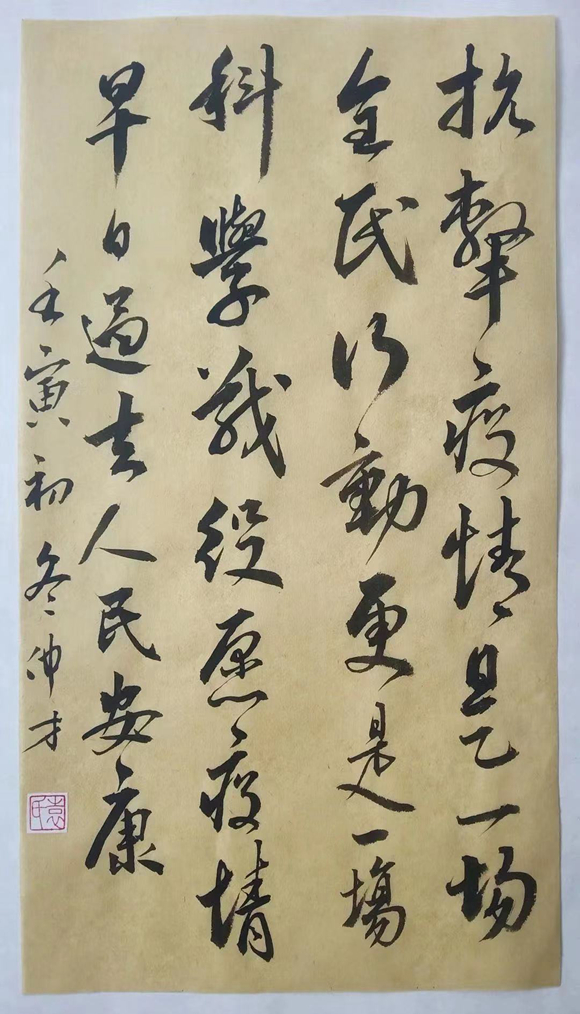 抗擊疫情是一场
全民行動更是一場
科學战役愿疫情
早日過去人民安康
壬寅初冬仲才